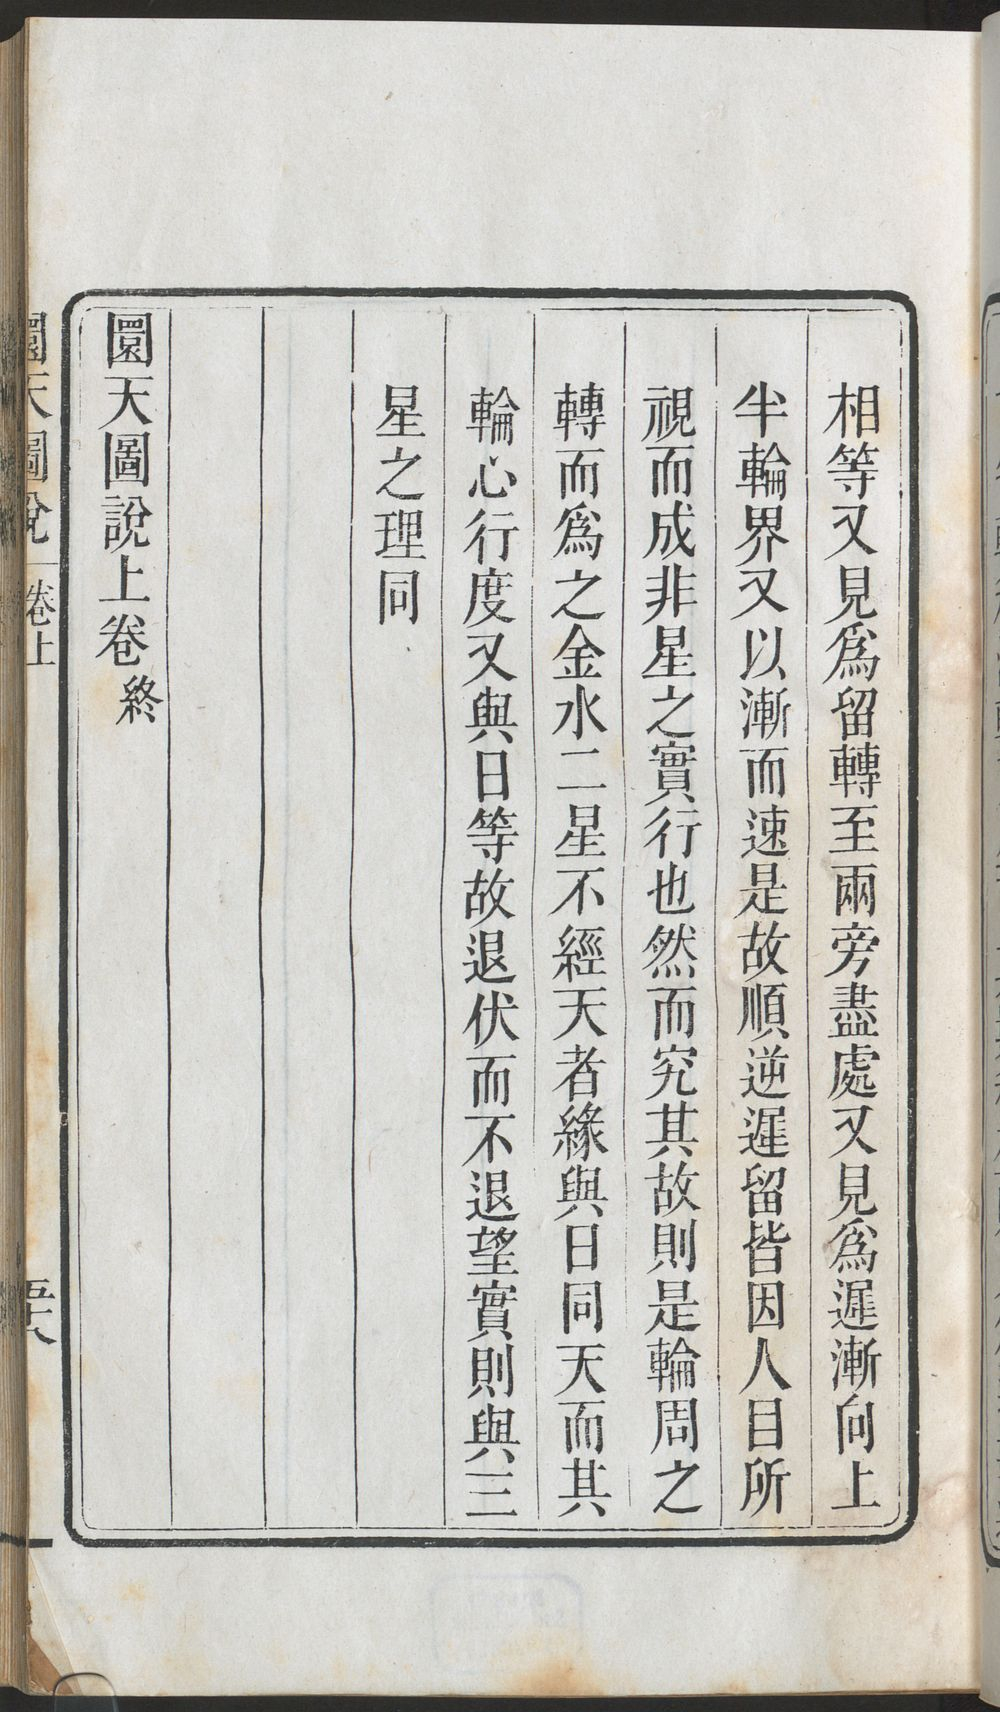 相等又見為留轉至兩旁盡處又見為遲漸向上
半輪界又以漸而速是故順逆遲留皆因人目所
視而成非星之實行也然而究其故則是輪周之
轉而為之金水二星不經天者緣與日同天而其
輪心行度又與日等故退伏而不退望實則與三
星之理同
圜天圖說上卷終
圜天圖說 卷上